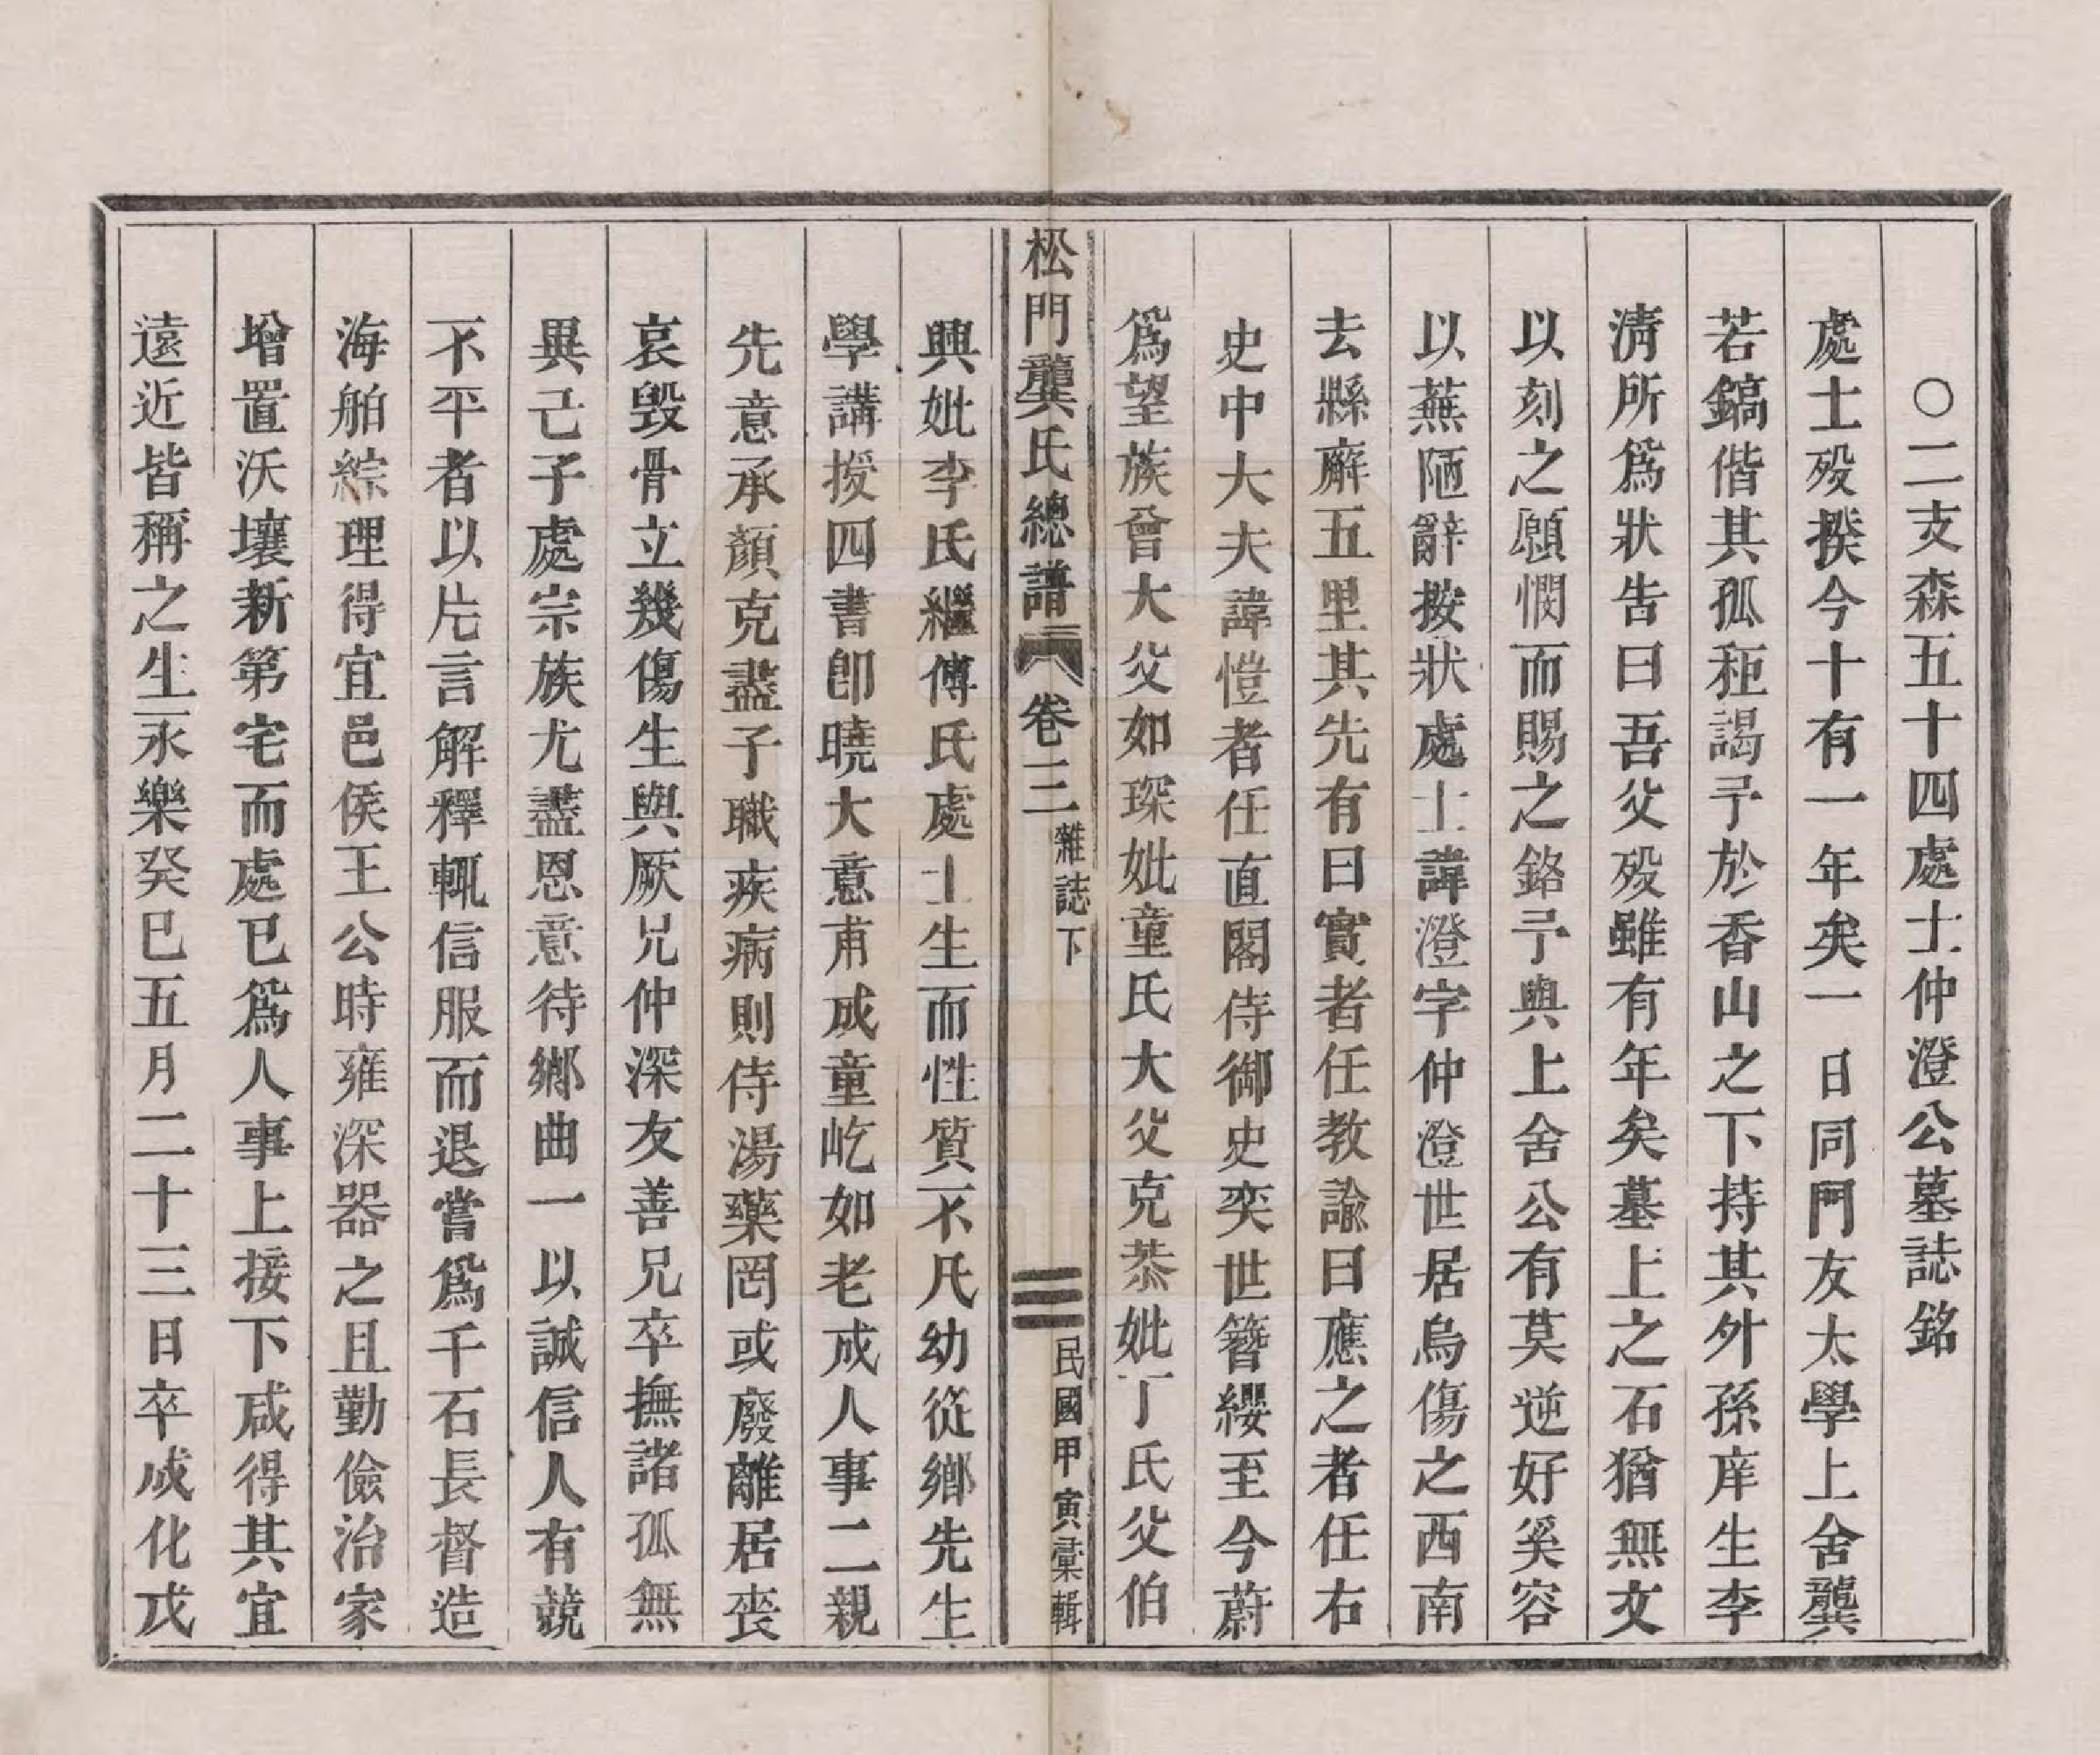 ○二支森五十四處士仲澄公墓誌銘
處士歿揆今十有一年矣一日同門友太學上舍龔
若鎬偕其孤秬謁予於香山之下持其外孫庠生李
淸所爲狀告曰吾父歿雖有年矣墓上之石猶無文
以刻之願憫而賜之銘予與上舍公有莫逆好奚容
以蕪陋辭按狀處士諱澄字仲澄世居烏傷之西南
去縣廨五里其先有曰實者任教諭曰應之者任右
史中大夫諱愷者任直閣侍御史奕世簪纓至今蔚
爲望族曾大父如琛妣童氏大父克恭妣丁氏父伯
松門龔氏總譜 卷三 雜誌下 三 民國甲寅彙輯
興妣李氏繼傅氏處士生而性質不凡幼從鄉先生
學講授四書卽曉大意甫成童屹如老成人事二親
先意承顏克盡子職疾病則侍湯藥罔或廢離居喪
哀毀骨立幾傷生與厥兄仲深友善兄卒撫諸孤無
異己子處宗族尤盡恩意待鄉曲一以誠信人有競
不平者以片言解釋輒信服而退嘗爲千石長督造
海舶綜理得宜邑侯王公時雍深器之且勤儉治家
增置沃壤新第宅而處已爲人事上接下咸得其宜
遠近皆稱之生永樂癸巳五月二十三日卒成化戊